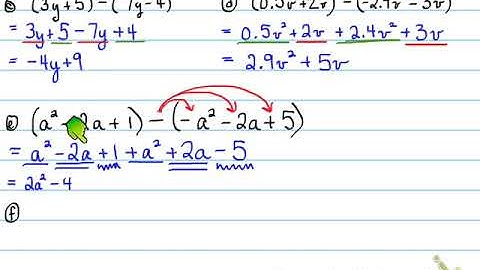 (3y+5)-(7y-4)
= 3y+5-7y+4
= -4y+9
(0.5v²+2v)-(-2.4v²-3v)
= 0.5v²+2v+2.4v²+3v
= 2.9v²+5v
e (a²-2a+1)-(-a²-2a+5)
= a²-2a+1+a²+2a-5
= 2a²-4
f